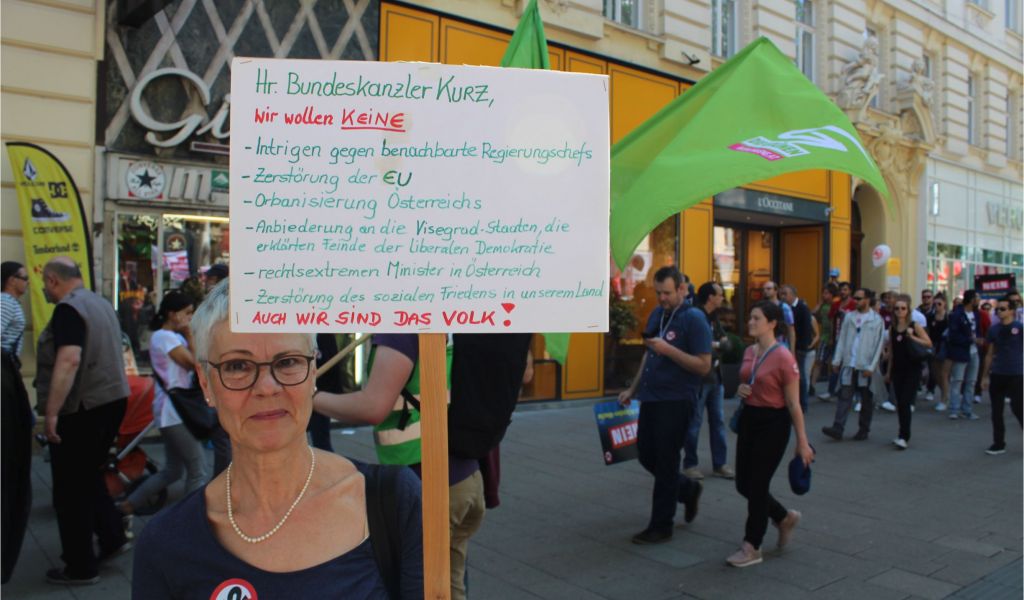 Hr. Bundeskanzler KURZ,
wir wollen KEINE
- Intrigen gegen benachbarte Regierungschefs
- Zerstörung der EU
- Orbanisierung Österreichs
- Anbiederung an die Visegrad-Staaten, die
erklärten Feinde der liberalen Demokratie
- rechtsextremen Minister in Österreich
- Zerstörung des sozialen Friedens in unserem Land
AUCH WIR SIND DAS VOLK!
Gi
VOLCOM
DC
CONVERSE
Timberland
L'OCCITANE
VER
NEIN